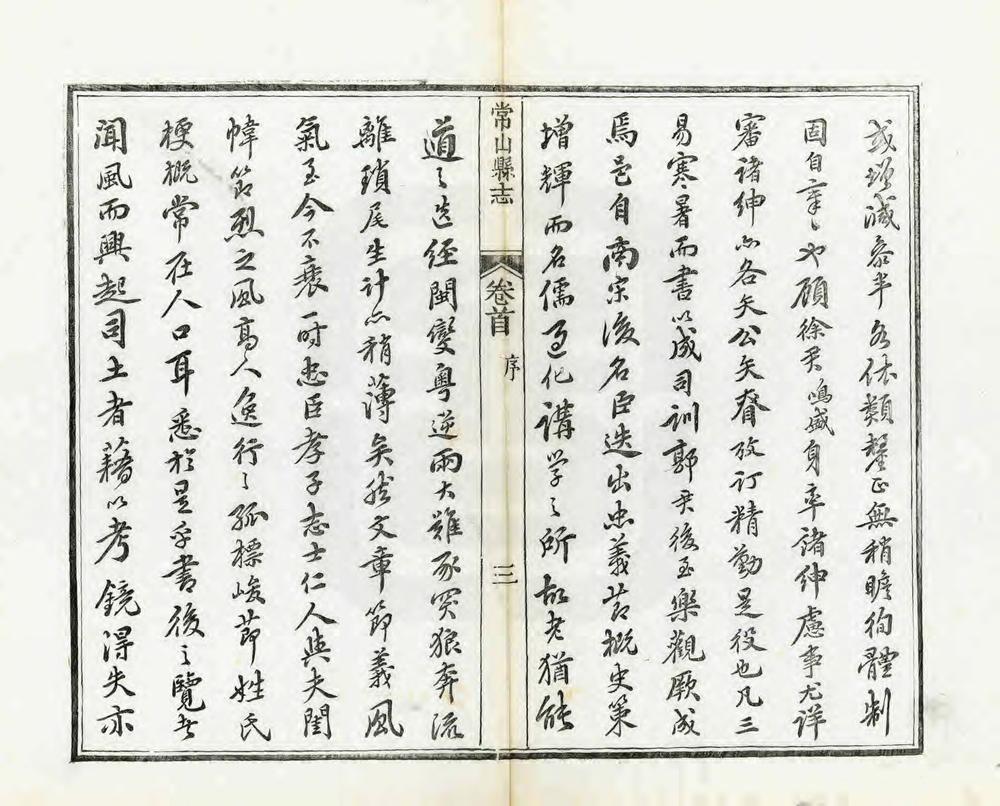 或增減參半各依類釐正無稍瞻徇體制
固自章〻也顧徐君鳴盛身率諸紳慮事尤詳
審諸紳亦各矢公矢脊攷訂精勤是役也凡三
易寒暑而書以成司訓郭君後至樂觀厥成
焉邑自南宋後名臣迭出忠義苦概史策
增輝而名儒過化講學之所故老猶能
常山縣志
卷首
序
三
道之迄經閩變粵逆兩大難豕突狼奔流
離瑣尾生計亦稍薄矣然文章節義風
氣至今不衰一時忠臣孝子志士仁人與夫閨
幃節烈之風高人逸行之孤標峻節姓氏
梗概常在人口耳悉於是乎書後之覽者
聞風而興起司土者藉以考鏡得失亦